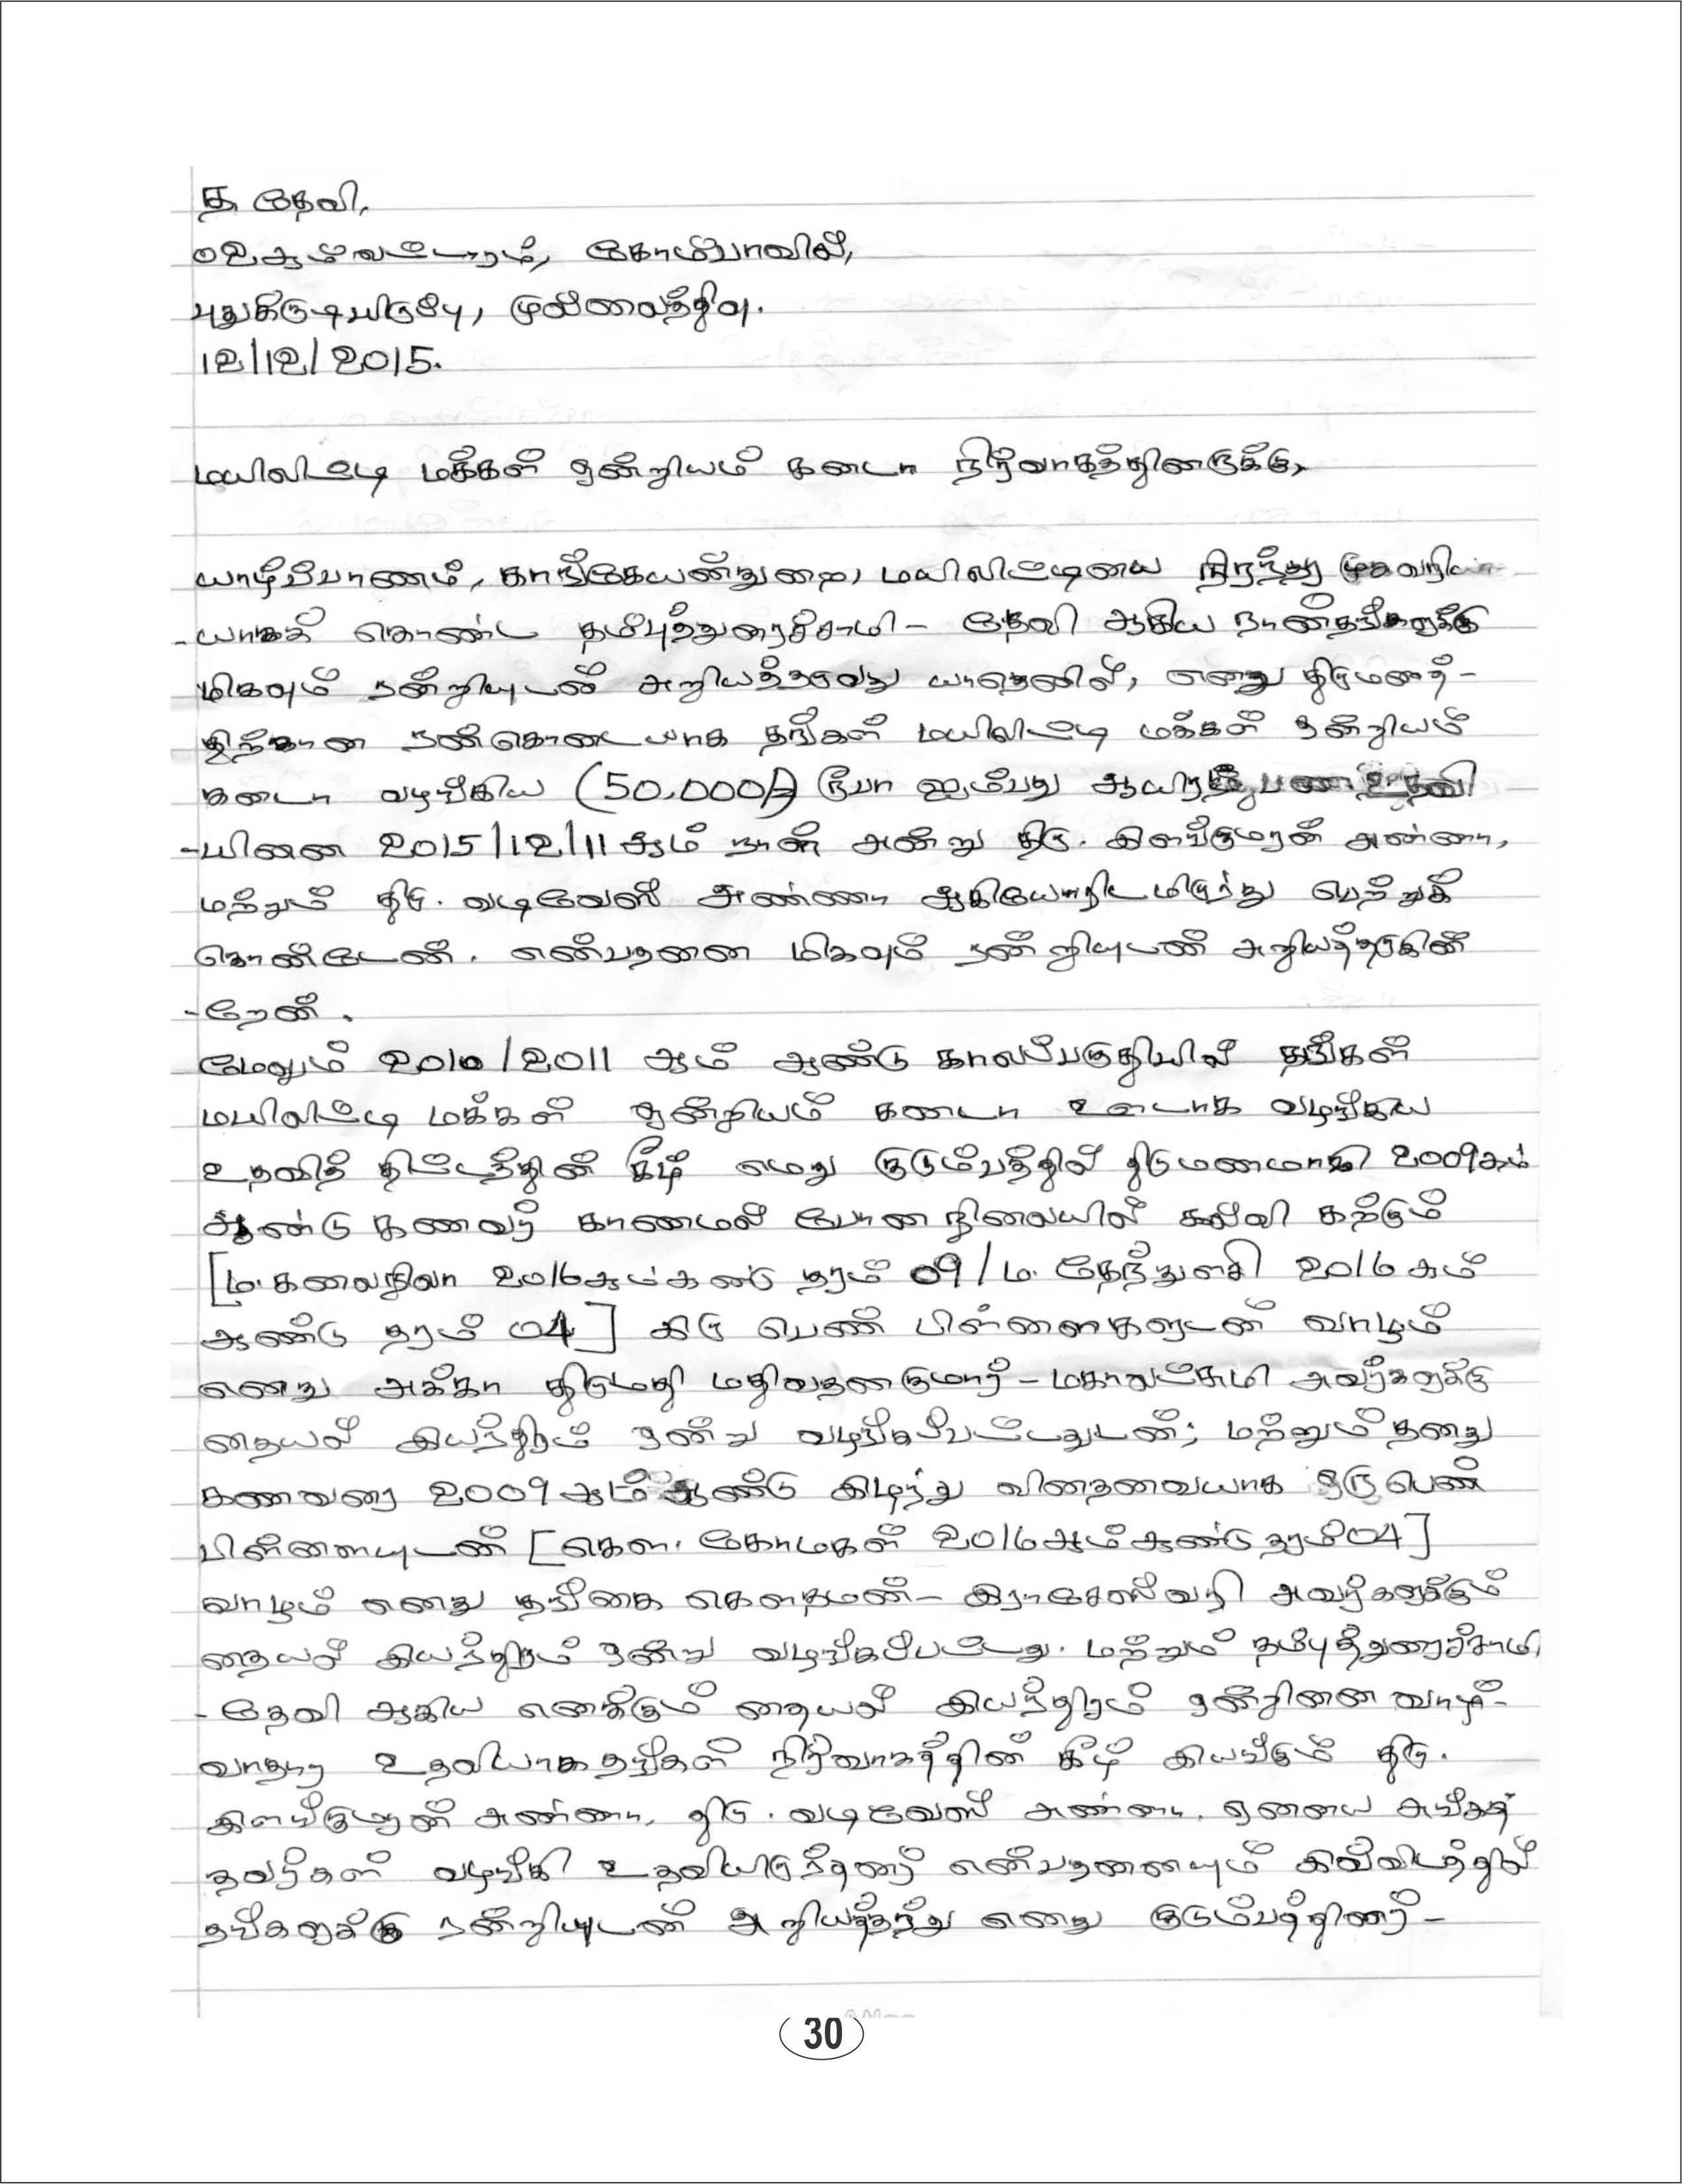 த. தேவி,
02ஆம் வட்டாரம், கோம்பாவில்,
புதுக்குடியிருப்பு, முல்லைத்தீவு.
12/12/2015.
மயிலிட்டி மக்கள் ஒன்றியம் கனடா நிர்வாகத்தினருக்கு,
யாழ்ப்பாணம், காங்கேயன்துறை, மயிலிட்டியை நிரந்தர முகவரி
-யாகக் கொண்ட தம்புத்துரைச்சாமி - தேவி ஆகிய நான் தங்களுக்கு
மிகவும் நன்றியுடன் அறியத்தருவது யாதெனில், எனது திருமணத்-
திற்கான நன்கொடையாக தங்கள் மயிலிட்டி மக்கள் ஒன்றியம்
கனடா வழங்கிய (50,000/=) ரூபா ஐம்பது ஆயிரத்து பண உதவி
-யினை 2015/12/11 ஆம் நாள் அன்று திரு. இளங்குமரன் அண்ணா,
மற்றும் திரு. வடிவேஸ் அண்ணா ஆகியோரிடமிருந்து பெற்றுக்
கொண்டேன். என்பதனை மிகவும் நன்றியுடன் அறியத்தருகின்
-றேன்.
மேலும் 2010/2011 ஆம் ஆண்டு காலப்பகுதியில் தங்கள்
மயிலிட்டி மக்கள் ஒன்றியம் கனடா ஊடாக வழங்கிய
உதவித் திட்டத்தின் கீழ் எமது குடும்பத்தில் திருமணமாகி 2009ஆம்
ஆண்டு கணவர் காணாமல் போன நிலையில் கல்வி கற்கும்
[ம. கலைநிலா 2016ஆம் ஆண்டு தரம் 09/ம. தேந்துளசி 2016 ஆம்
ஆண்டு தரம் 04] இரு பெண் பிள்ளைகளுடன் வாழும்
எனது அக்கா திருமதி மதிவதனகுமார் - மகாலட்சுமி அவர்களுக்கு
தையல் இயந்திரம் ஒன்று வழங்கப்பட்டதுடன்; மற்றும் தனது
கணவரை 2009 ஆம் ஆண்டு இழந்து விதவையாக ஒரு பெண்
பிள்ளையுடன் [கௌ. கோமகள் 2016ஆம் ஆண்டு தரம் 04]
வாழும் எனது தங்கை கௌதமன் - இராஜேஸ்வரி அவர்களுக்கும்
தையல் இயந்திரம் ஒன்று வழங்கப்பட்டது. மற்றும் தம்புத்துரைச்சாமி
- தேவி ஆகிய எனக்கும் தையல் இயந்திரம் ஒன்றினை வாழ்-
வாதார உதவியாக தங்கள் நிர்வாகத்தின் கீழ் இயங்கும் திரு.
இளங்குமரன் அண்ணா, திரு. வடிவேஸ் அண்ணா, ஏனைய அங்கத்
தவர்கள் வழங்கி உதவியிருந்தனர் என்பதனையும் இவ்விடத்தில்
தங்களுக்கு நன்றியுடன் அறியத்தந்து எனது குடும்பத்தினர் -
30